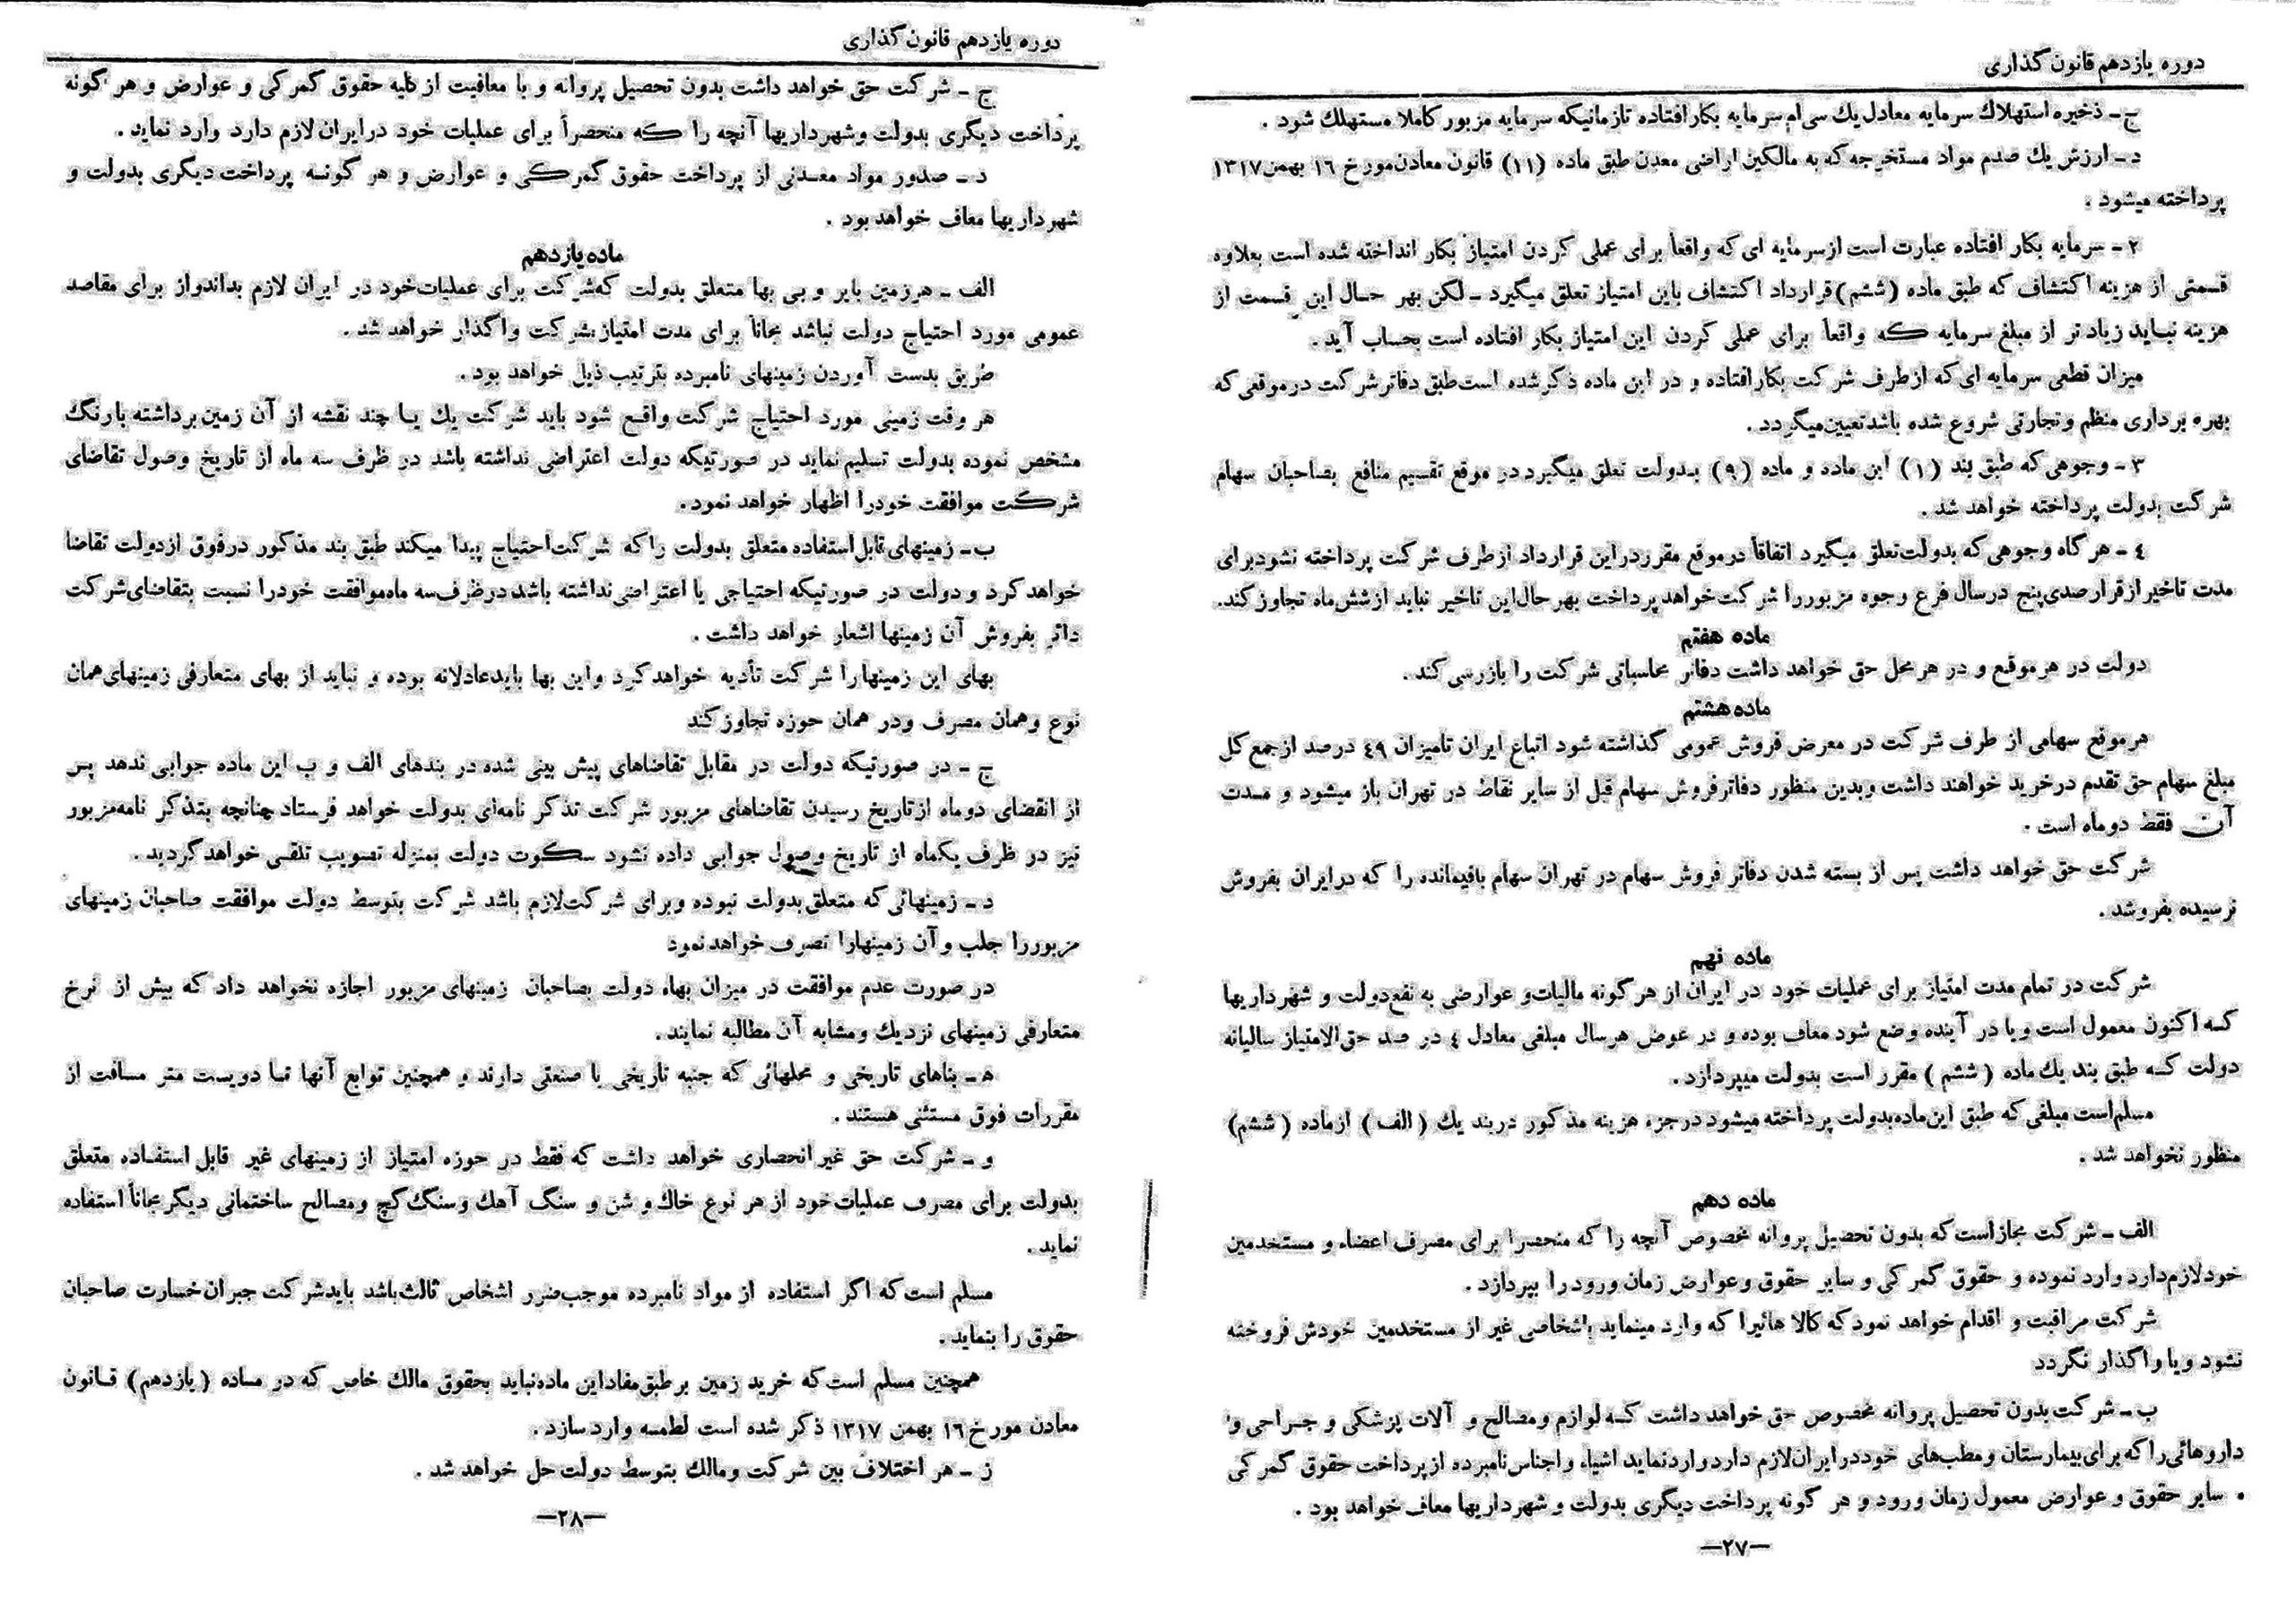 دوره یازدهم قانون‌گذاری
ج ـ ذخیره استهلاك سرمایه معادل یك سی‌ام سرمایه بکار افتاده تا زمانیکه سرمایه مزبور کاملا مستهلك شود .
د ـ ارزش یك صدم مواد مستخرجه که به مالکین اراضی معدن طبق ماده (۱۱) قانون معادن مورخ ۱۶ بهمن ۱۳۱۷
پرداخته میشود .
۲ ـ سرمایه بکار افتاده عبارت است از سرمایه ای که واقعاً برای عملی کردن امتیاز بکار انداخته شده است بعلاوه
قسمتی از هزینه اکتشاف که طبق ماده (ششم) قرارداد اکتشاف باین امتیاز تعلق میگیرد ـ لکن بهر حال این قسمت از
هزینه نباید زیاد تر از مبلغ سرمایه که واقعاً برای عملی کردن این امتیاز بکار افتاده است بحساب آید .
میزان قطعی سرمایه ای که از طرف شرکت بکار افتاده و در این ماده ذکر شده است طبق دفاتر شرکت در موقعی که
بهره برداری منظم و تجارتی شروع شده باشد تعیین میگردد .
۳ ـ وجوهی که طبق بند (۱) این ماده و ماده (۹) بدولت تعلق میگیرد در موقع تقسیم منافع بصاحبان سهام
شرکت بدولت پرداخته خواهد شد .
٤ ـ هر گاه وجوهی که بدولت تعلق میگیرد اتفاقاً در موقع مقرر در این قرارداد از طرف شرکت پرداخته نشود برای
مدت تاخیر از قرار صدی پنج در سال فرع وجوه مزبور را شرکت خواهد پرداخت بهر حال این تاخیر نباید از شش ماه تجاوز کند.
ماده هفتم
دولت در هر موقع و در هر محل حق خواهد داشت دفاتر محاسباتی شرکت را بازرسی کند .
ماده هشتم
هر موقع سهامی از طرف شرکت در معرض فروش عمومی گذاشته شود اتباع ایران تا میزان ٤٩ درصد از جمع کل
مبلغ سهام حق تقدم در خرید خواهند داشت و بدین منظور دفاتر فروش سهام قبل از سایر نقاط در تهران باز میشود و مدت
آن فقط دو ماه است .
شرکت حق خواهد داشت پس از بسته شدن دفاتر فروش سهام در تهران سهام باقیمانده را که در ایران بفروش
نرسیده بفروشد .
ماده نهم
شرکت در تمام مدت امتیاز برای عملیات خود در ایران از هر گونه مالیات و عوارضی به نفع دولت و شهرداریها
که اکنون معمول است و یا در آینده وضع شود معاف بوده و در عوض هر سال مبلغی معادل ٤ در صد حق‌الامتیاز سالیانه
دولت که طبق بند یك ماده (ششم) مقرر است بدولت میپردازد .
مسلم است مبلغی که طبق این ماده بدولت پرداخته میشود در جزء هزینه مذکور در بند یك (الف) از ماده (ششم)
منظور نخواهد شد .
ماده دهم
الف ـ شرکت مجاز است که بدون تحصیل پروانه مخصوص آنچه را که منحصرا برای مصرف اعضاء و مستخدمین
خود لازم دارد وارد نموده و حقوق گمرکی و سایر حقوق و عوارض زمان ورود را بپردازد .
شرکت مراقبت و اقدام خواهد نمود که کالا هائیرا که وارد مینماید باشخاصی غیر از مستخدمین خودش فروخته
نشود و یا واگذار نگردد
ب ـ شرکت بدون تحصیل پروانه مخصوص حق خواهد داشت که لوازم و مصالح و آلات پزشکی و جراحی و
داروهائی را که برای بیمارستان و مطب‌های خود در ایران لازم دارد وارد نماید اشیاء و اجناس نامبرده از پرداخت حقوق گمرکی
. سایر حقوق و عوارض معمول زمان ورود و هر گونه پرداخت دیگری بدولت و شهرداریها معاف خواهد بود .
—۲۷—
دوره یازدهم قانون‌گذاری
ج ـ شرکت حق خواهد داشت بدون تحصیل پروانه و با معافیت از کلیه حقوق گمرکی و عوارض و هر گونه
پرداخت دیگری بدولت و شهرداریها آنچه را که منحصراً برای عملیات خود در ایران لازم دارد وارد نماید .
د ـ صدور مواد معدنی از پرداخت حقوق گمرکی و عوارض و هر گونه پرداخت دیگری بدولت و
شهرداریها معاف خواهد بود .
ماده یازدهم
الف ـ هر زمین بایر و بی بها متعلق بدولت که شرکت برای عملیات خود در ایران لازم بداند و از برای مقاصد
عمومی مورد احتیاج دولت نباشد مجاناً برای مدت امتیاز بشرکت واگذار خواهد شد .
طریق بدست آوردن زمینهای نامبرده بترتیب ذیل خواهد بود .
هر وقت زمینی مورد احتیاج شرکت واقع شود باید شرکت یك یا چند نقشه از آن زمین برداشته با رنگ
مشخص نموده بدولت تسلیم نماید در صورتیکه دولت اعتراضی نداشته باشد در ظرف سه ماه از تاریخ وصول تقاضای
شرکت موافقت خود را اظهار خواهد نمود .
ب ـ زمینهای قابل استفاده متعلق بدولت را که شرکت احتیاج پیدا میکند طبق بند مذکور در فوق از دولت تقاضا
خواهد کرد و دولت در صورتیکه احتیاجی یا اعتراضی نداشته باشد در ظرف سه ماه موافقت خود را نسبت بتقاضای شرکت
دائر بفروش آن زمینها اشعار خواهد داشت .
بهای این زمینها را شرکت تأدیه خواهد کرد و این بها باید عادلانه بوده و نباید از بهای متعارفی زمینهای همان
نوع و همان مصرف و در همان حوزه تجاوز کند
ج ـ در صورتیکه دولت در مقابل تقاضاهای پیش بینی شده در بندهای الف و ب این ماده جوابی ندهد پس
از انقضای دو ماه از تاریخ رسیدن تقاضاهای مزبور شرکت تذکر نامه‌ای بدولت خواهد فرستاد چنانچه بتذکر نامه مزبور
نیز در ظرف یکماه از تاریخ وصول جوابی داده نشود سکوت دولت بمنزله تصویب تلقی خواهد گردید .
د ـ زمینهائی که متعلق بدولت نبوده و برای شرکت لازم باشد شرکت بتوسط دولت موافقت صاحبان زمینهای
مزبور را جلب و آن زمینها را تصرف خواهد نمود
در صورت عدم موافقت در میزان بهاء دولت بصاحبان زمینهای مزبور اجازه نخواهد داد که بیش از نرخ
متعارفی زمینهای نزدیك و مشابه آن مطالبه نمایند .
ه ـ بناهای تاریخی و محلهائی که جنبه تاریخی یا صنعتی دارند و همچنین توابع آنها تا دویست متر مسافت از
مقررات فوق مستثنی هستند .
و ـ شرکت حق غیر انحصاری خواهد داشت که فقط در حوزه امتیاز از زمینهای غیر قابل استفاده متعلق
بدولت برای مصرف عملیات خود از هر نوع خاك و شن و سنگ آهك و سنگ گچ و مصالح ساختمانی دیگر مجاناً استفاده
نماید .
مسلم است که اگر استفاده از مواد نامبرده موجب ضرر اشخاص ثالث باشد باید شرکت جبران خسارت صاحبان
حقوق را بنماید .
همچنین مسلم است که خرید زمین بر طبق مفاد این ماده نباید بحقوق مالك خاص که در ماده (یازدهم) قانون
معادن مورخ ۱۶ بهمن ۱۳۱۷ ذکر شده است لطمه وارد سازد .
ز ـ هر اختلاف بین شرکت و مالك بتوسط دولت حل خواهد شد .
—۲۸—